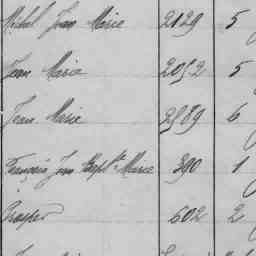 Michel Jean Marie 2129 5
Jean Marie 2052 5
Jean Marie 2589 6
François Jean Bapte Marie 390 1
Prosper 602 2